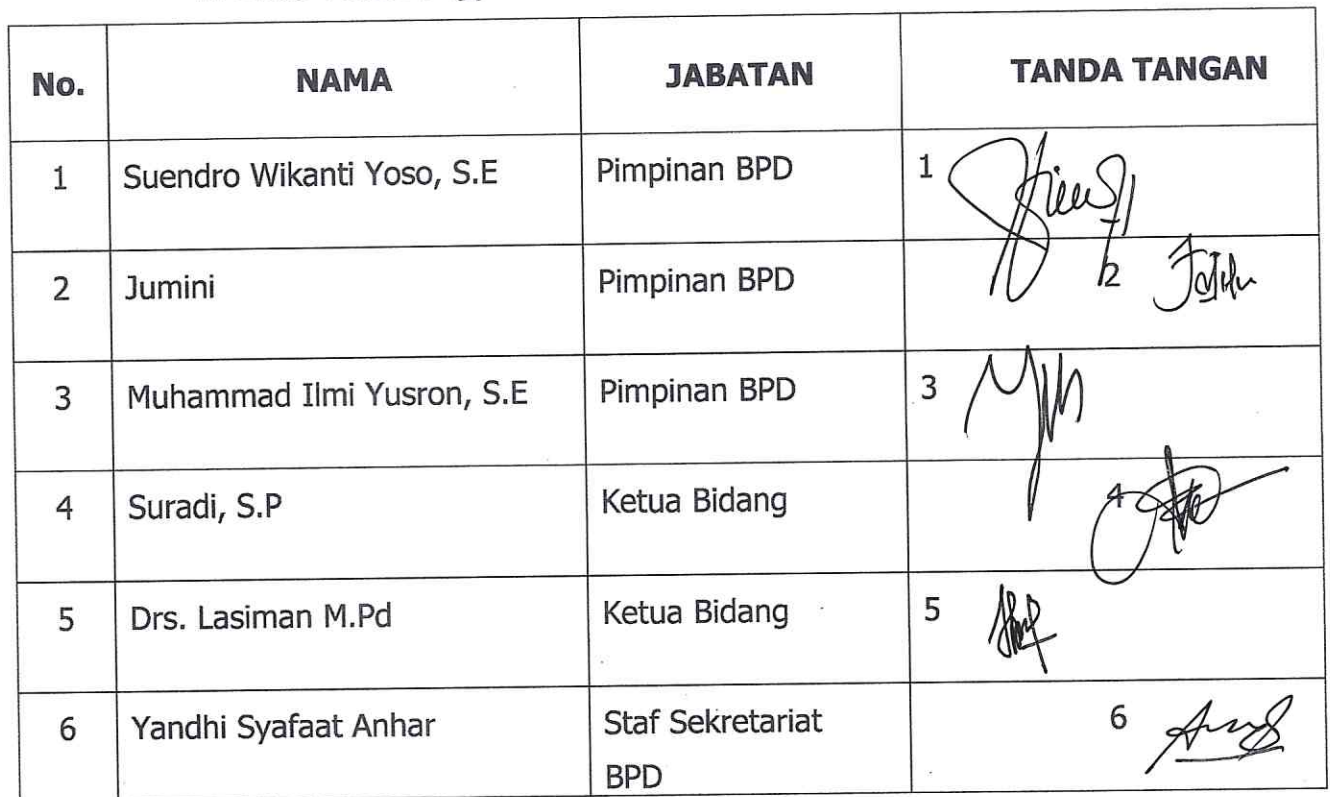 No. NAMA JABATAN TANDA TANGAN
1 Suendro Wikanti Yoso, S.E Pimpinan BPD 1
2 Jumini Pimpinan BPD 2
3 Muhammad Ilmi Yusron, S.E Pimpinan BPD 3
4 Suradi, S.P Ketua Bidang 4
5 Drs. Lasiman M.Pd Ketua Bidang 5
6 Yandhi Syafaat Anhar Staf Sekretariat 6
BPD